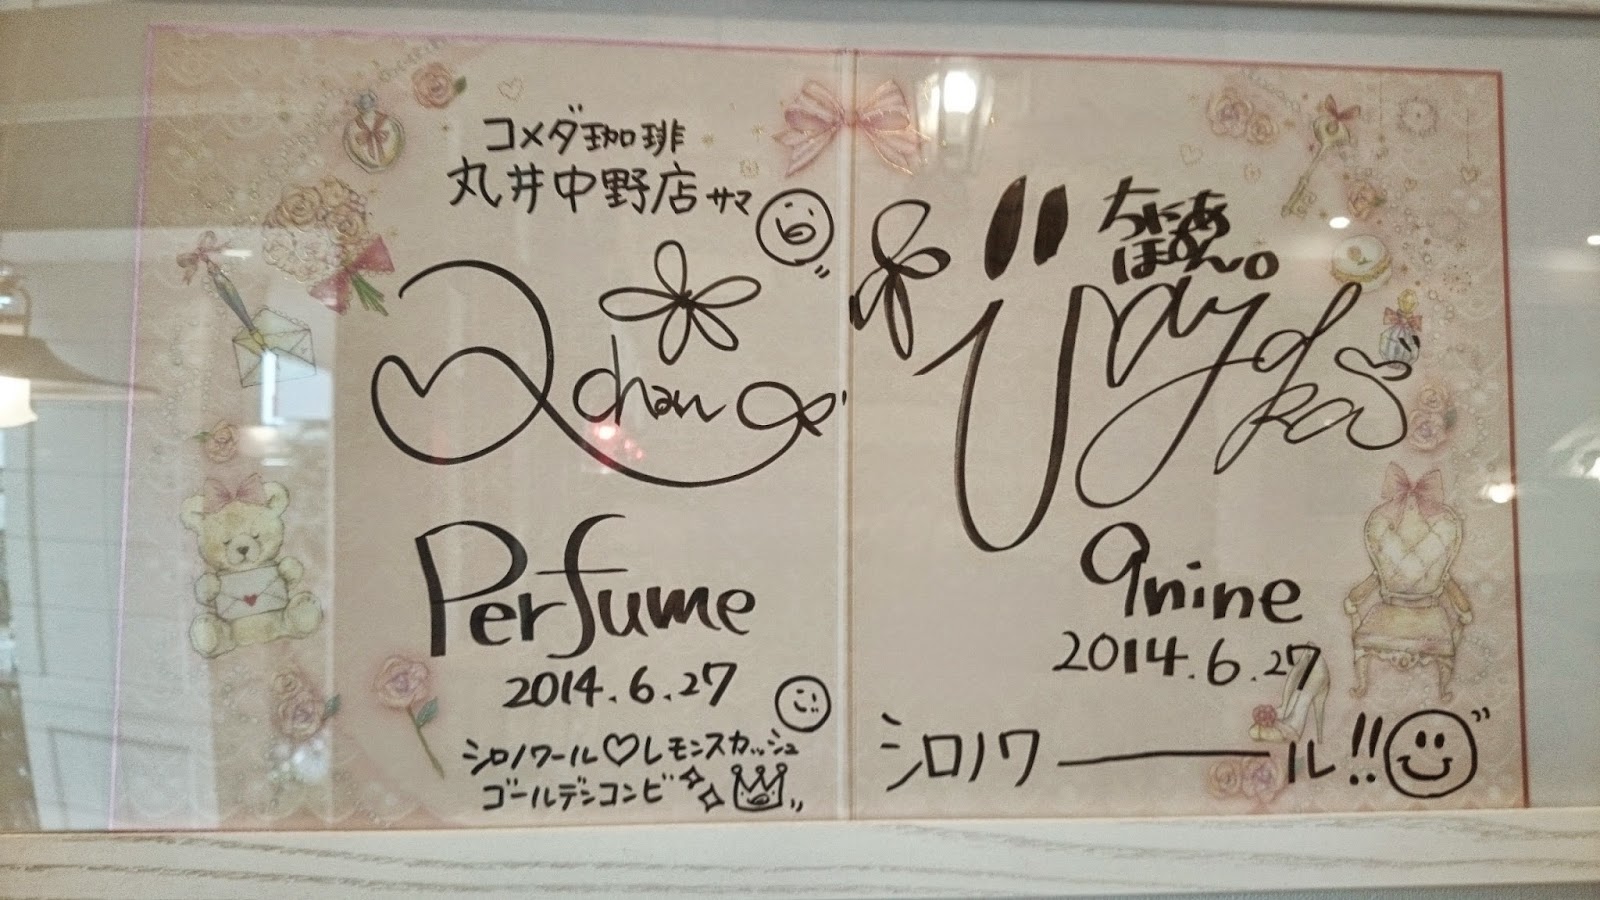 コメダ珈琲
丸井中野店サマ
chan
Perfume
2014.6.27
シロノワール♡レモンスカッシュ
ゴールデンコンビ
9nine
2014.6.27
シロノワーール!!